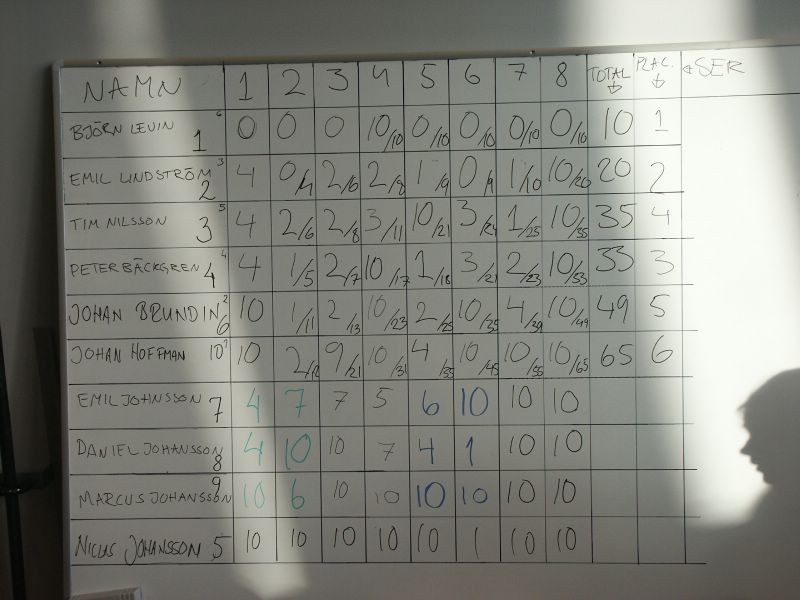 NAMN 1 2 3 4 5 6 7 8 TOTAL PLAC. SER
BJÖRN LEVIN 1 6 0 0 0 10/10 0/10 0/10 0/10 0/10 10 1
EMIL LINDSTRÖM 2 3 4 0/4 2/6 2/8 1/9 0/9 1/10 10/20 20 2
TIM NILSSON 3 5 4 2/6 2/8 3/11 10/21 3/24 1/25 10/35 35 4
PETER BÄCKGREN 4 4 4 1/5 2/7 10/17 1/18 3/21 2/23 10/33 33 3
JOHAN BRUNDIN 6 2 10 1/11 2/13 10/23 2/25 10/35 4/39 10/49 49 5
JOHAN HOFFMAN 10 1 10 2/12 9/21 10/31 4/35 10/45 10/55 10/65 65 6
EMIL JOHNSSON 7 4 7 7 5 6 10 10 10
DANIEL JOHANSSON 8 4 10 10 7 4 1 10 10
MARCUS JOHANSSON 9 10 6 10 10 10 10 10 10
NICLAS JOHANSSON 5 10 10 10 10 10 1 10 10